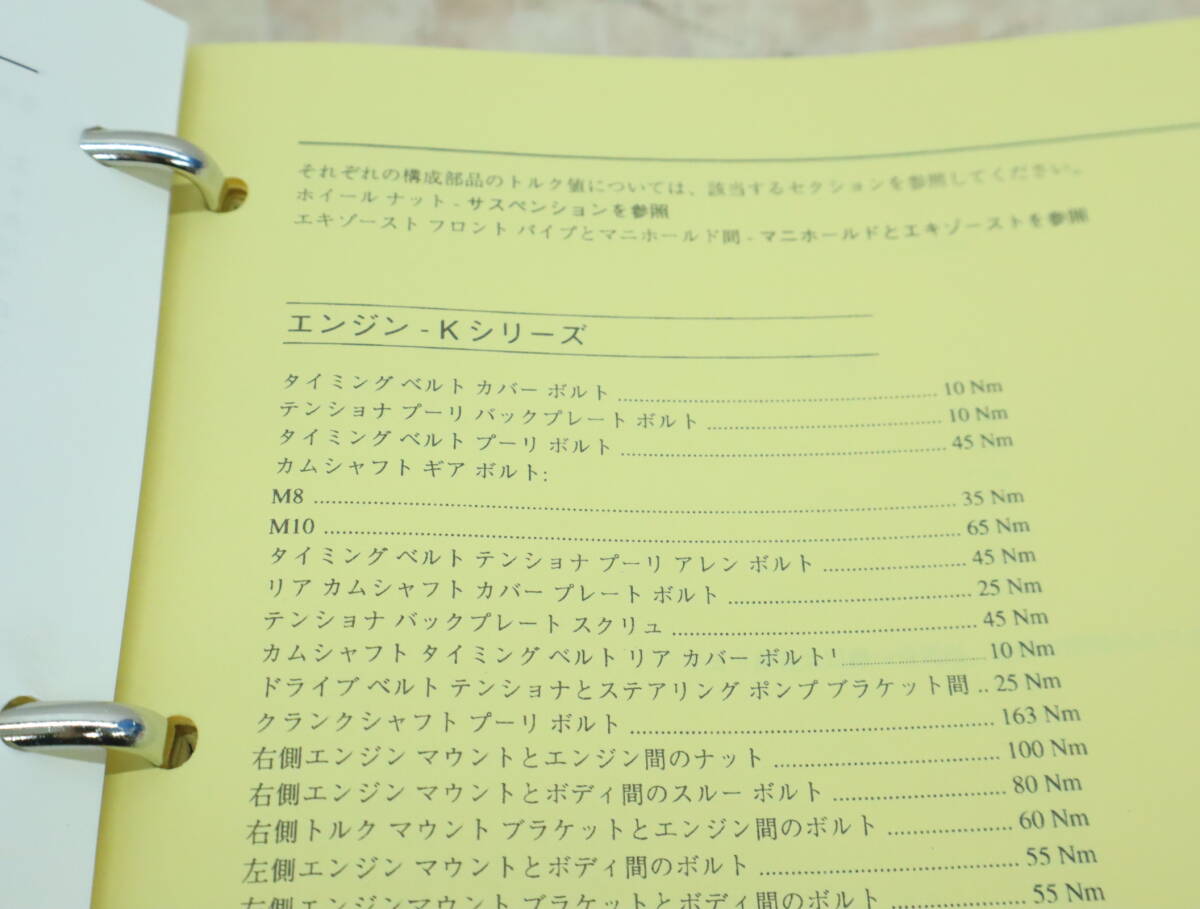 それぞれの構成部品のトルク値については、該当するセクションを参照してください。
ホイール ナット - サスペンションを参照
エキゾースト フロント パイプとマニホールド間 - マニホールドとエキゾーストを参照
エンジン - Kシリーズ
タイミング ベルト カバー ボルト 10 Nm
テンショナ プーリ バックプレート ボルト 10 Nm
タイミング ベルト プーリ ボルト 45 Nm
カムシャフト ギア ボルト:
M8 35 Nm
M10 65 Nm
タイミング ベルト テンショナ プーリ アレン ボルト 45 Nm
リア カムシャフト カバー プレート ボルト 25 Nm
テンショナ バックプレート スクリュ 45 Nm
カムシャフト タイミング ベルト リア カバー ボルト 10 Nm
ドライブ ベルト テンショナとステアリング ポンプ ブラケット間 .. 25 Nm
クランクシャフト プーリ ボルト 163 Nm
右側エンジン マウントとエンジン間のナット 100 Nm
右側エンジン マウントとボディ間のスルー ボルト 80 Nm
右側トルク マウント ブラケットとエンジン間のボルト 60 Nm
左側エンジン マウントとボディ間のボルト 55 Nm
左側エンジンマウント ブラケットとボディ間のボルト 55 Nm